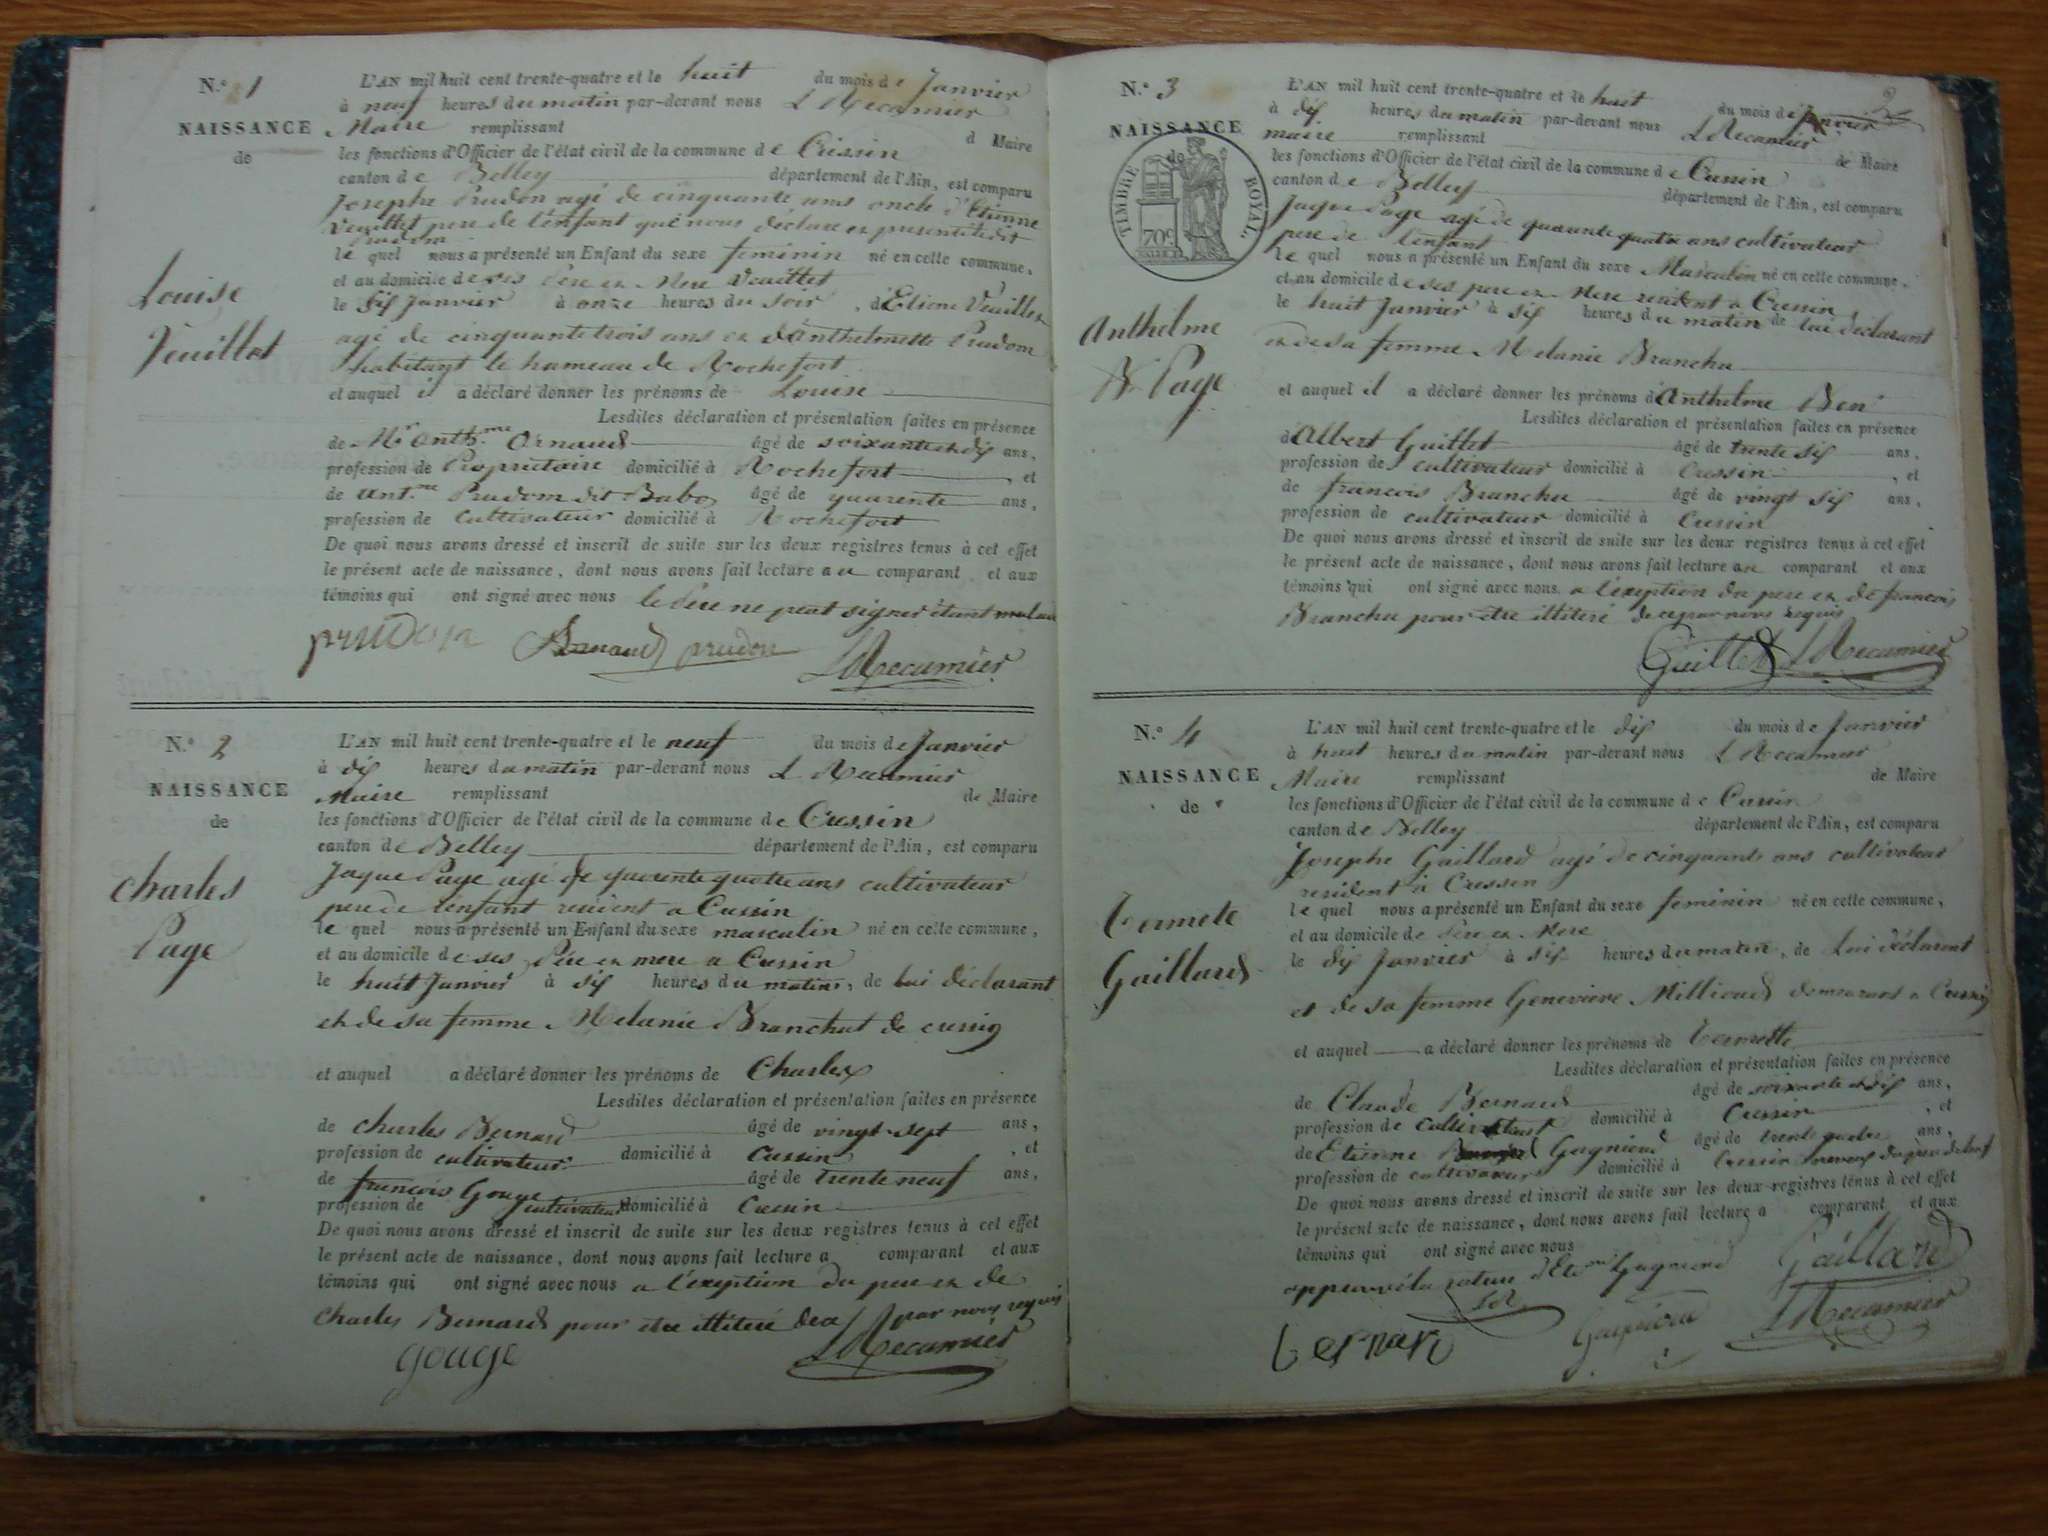 N.º 1
NAISSANCE
de
Louise
Veuillet
L'AN mil huit cent trente-quatre et le huit du mois de Janvier
à neuf heures du matin par-devant nous L Recamier
Maire remplissant d Maire
les fonctions d'Officier de l'état civil de la commune de Cressin
canton de Belley département de l'Ain, est comparu
Josephe Prudon agé de cinquante ans oncle d'Etienne
Veuillet pere de l'enfant que nous déclare et presente ledit
Prudom
le quel nous a présenté un Enfant du sexe feminin né en cette commune,
et au domicile de ses Pere et Mere Veuillet
le six Janvier à onze heures du soir, d'Etiene Veuillet
agé de cinquante trois ans et d'Anthelmette Prudom
habitant le hameau de Rochefort
et auquel il a déclaré donner les prénoms de Louise
Lesdites déclaration et présentation faites en présence
de Mr Anth.me Arnaud âgé de soixante et dix ans,
profession de Propriétaire domicilié à Rochefort, et
de Ant.me Prudom dit Babo âgé de quarente ans,
profession de cultivateur domicilié à Rochefort
De quoi nous avons dressé et inscrit de suite sur les deux registres tenus à cet effet
le présent acte de naissance, dont nous avons fait lecture au comparant et aux
témoins qui ont signé avec nous le Père ne peut signer étant malade
prudon Arnaud prudon LRecamier
N.º 2
NAISSANCE
de
Charles
Page
L'AN mil huit cent trente-quatre et le neuf du mois de Janvier
à dix heures du matin par-devant nous L Recamier
Maire remplissant de Maire
les fonctions d'Officier de l'état civil de la commune de Cressin
canton de Belley département de l'Ain, est comparu
Jaque Page agé de quarente quatre ans cultivateur
pere de l'enfant resident a Cressin
le quel nous a présenté un Enfant du sexe masculin né en cette commune,
et au domicile de ses Père et mere a Cressin
le huit Janvier à six heures du matin, de lui déclarant
et de sa femme Melanie Branchut de cressin
et auquel a déclaré donner les prénoms de Charles
Lesdites déclaration et présentation faites en présence
de Charles Bernard âgé de vingt-sept ans,
profession de cultivateur domicilié à Cressin, et
de françois Gouge âgé de trente neuf ans,
profession de cultivateur domicilié à Cressin
De quoi nous avons dressé et inscrit de suite sur les deux registres tenus à cet effet
le présent acte de naissance, dont nous avons fait lecture a comparant et aux
témoins qui ont signé avec nous a l'exeption du pere et de
Charles Bernard pour etre illiteré de ce par nous requis
gouge LRecamier
2
N.º 3
NAISSANCE
de
TIMBRE ROYAL
70c
Anthelme
B. Page
L'AN mil huit cent trente-quatre et le huit du mois de Janvier
à dix heures du matin par-devant nous L Recamier
maire remplissant de Maire
les fonctions d'Officier de l'état civil de la commune de Cressin
canton de Belley département de l'Ain, est comparu
Jaque Page agé de quarante quatre ans cultivateur
pere de l'enfant
le quel nous a présenté un Enfant du sexe Masculin né en cette commune,
et au domicile de ses pere et Mere resident a Cressin
le huit Janvier à six heures du matin de lui déclarant
et de sa femme Melanie Branchu
et auquel il a déclaré donner les prénoms d'Anthelme Ben
Lesdites déclaration et présentation faites en présence
d'Albert Guillet âgé de trente six ans,
profession de cultivateur domicilié à Cressin, et
de francois Branchu âgé de vingt six ans,
profession de cultivateur domicilié à Cressin
De quoi nous avons dressé et inscrit de suite sur les deux registres tenus à cet effet
le présent acte de naissance, dont nous avons fait lecture au comparant et aux
témoins qui ont signé avec nous a l'exeption du pere et de francois
Branchu pour etre illiteré de ce par nous requis
Guillet LRecamier
N.º 4
NAISSANCE
de
Gaillard
L'AN mil huit cent trente-quatre et le dix du mois de Janvier
à huit heures du matin par-devant nous L Recamier
Maire remplissant de Maire
les fonctions d'Officier de l'état civil de la commune de Cressin
canton de Belley département de l'Ain, est comparu
Josephe Gaillard agé de cinquante ans cultivateur
resident à Cressin
le quel nous a présenté un Enfant du sexe feminin né en cette commune,
et au domicile de Père et Mere
le dix Janvier à six heures du matin, de Lui déclarant
et de sa femme Genevieve Millioud demeurant a Cressin
et auquel a déclaré donner les prénoms de
Lesdites déclaration et présentation faites en présence
de Claude Bernard âgé de soixante et dix ans,
profession de cultivateur domicilié à Cressin, et
de Etienne Gagnieud âgé de trente quatre ans,
profession de cultivateur domicilié à Cressin
De quoi nous avons dressé et inscrit de suite sur les deux registres tenus à cet effet
le présent acte de naissance, dont nous avons fait lecture a comparant et aux
témoins qui ont signé avec nous
approuvé la rature d'Et.ne Gagnieud Gaillard
LR
bernard LRecamier